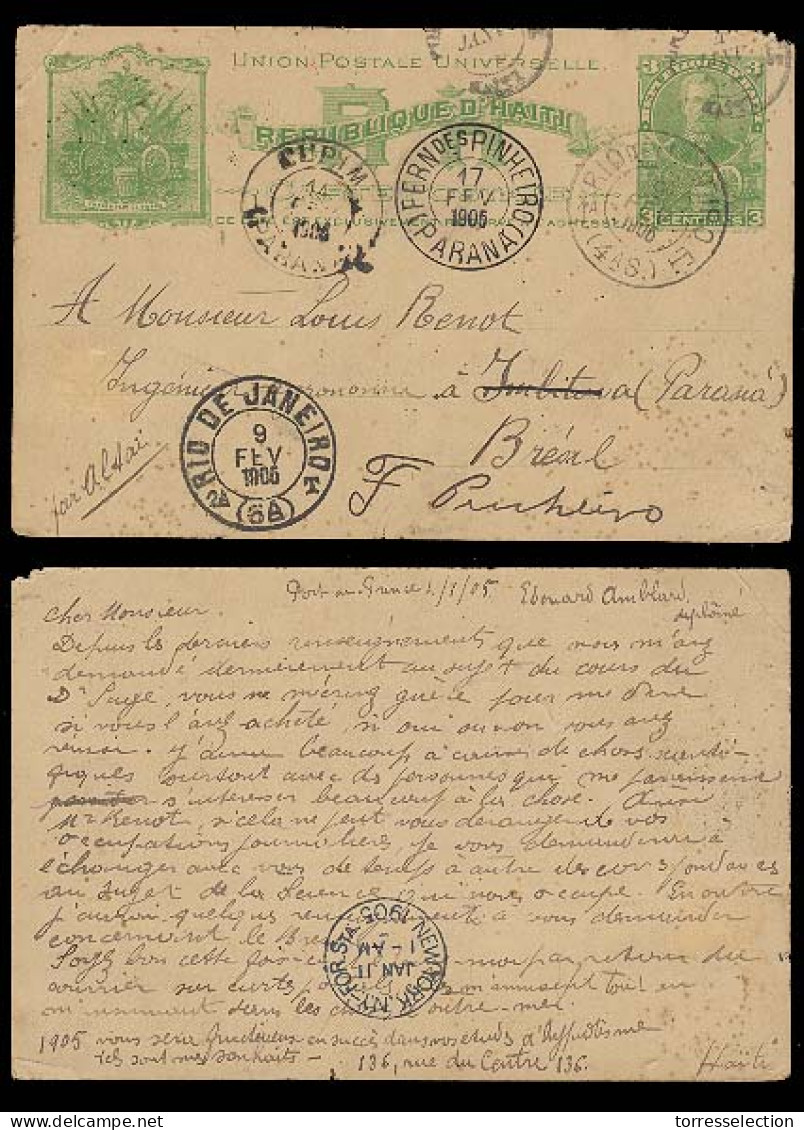 UNION POSTALE UNIVERSELLE.
REPUBLIQUE D'HAITI
3 CENTIMES 3
CUPIM
1905
(PARANA)
FERN DES PINHEIRO
17
FEV
1905
(PARANA)
RIO DE
1905
(4AS.)
A Monsieur Louis Renot
Ingénieur agronome à Imbituva (Paraná)
Brésil
F Pinheiro
par Altai
RIO DE JANEIRO
9
FEV
1905
(6A)
Port au Prince 1/1/05 - Edouard Amblard
diplômé
Cher Monsieur.
Depuis les derniers renseignements que vous m'avez
demandé dernièrement au sujet du cours du
Dr Sage, vous ne m'écrivez guère pour me dire
si vous l'avez acheté, si oui ou non vous avez
J'aime beaucoup à causer de choses scienti-
fiques surtout avec des personnes qui me paraissent
s'intéresser beaucoup à la chose. Aussi
Mr Renot, si cela ne peut vous déranger de vos
occupations journalières, je vous demanderai à
échanger avec vous de temps à autre des correspondances
au sujet de la Science qui nous occupe. En outre
j'aurai quelques renseignements à vous demander
concernant le
Soyez bon cette fois-ci par retour du
courrier sur cartes
dans les outre-mer.
1905 vous sera fructueux en succès dans vos études d'Hypnotisme
tels sont mes souhaits - 136, rue du Centre 136.
Haïti
NEW YORK, N.Y. FOR. STA. 1905
JAN 11
1 - AM
torresselection.com